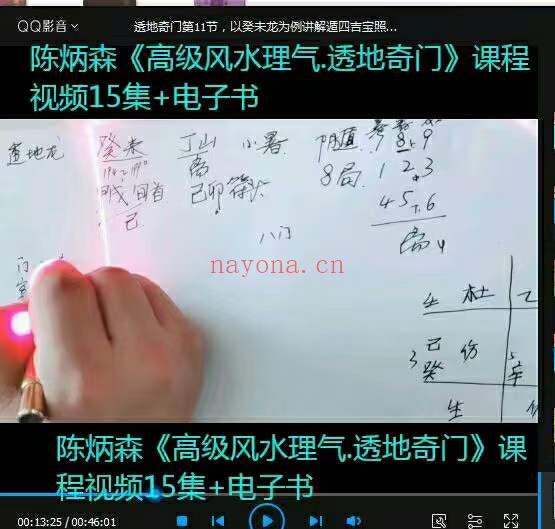 QQ影音
透地奇门第11节，以癸未龙为例讲解遁四吉宝照...
陈炳森《高级风水理气.透地奇门》课程
视频15集+电子书
透地龙 癸未 丁山 小暑 阴遁 7 8 9
离 8局 1 2 3
旬首 己卯 符头
4 5 6
己
八门
离4
nayona.cn
4 杜 乙
己 伤
3 癸
生
陈炳森《高级风水理气.透地奇门》课
程视频15集+电子书
00:13:25 / 00:46:01